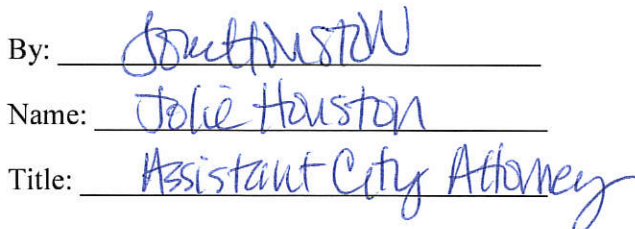 By: Jolie Houston
Name: Jolie Houston
Title: Assistant City Attorney